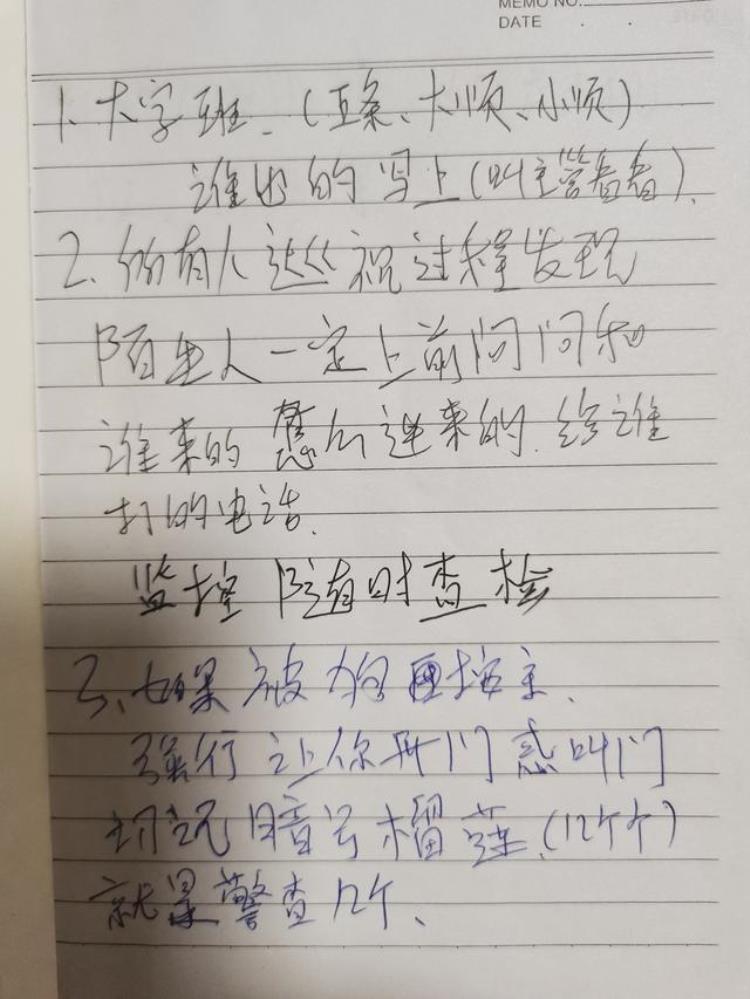 MEMO NO.
DATE . .
1、大字班、(豆条、大顺、小顺)
谁出的写上(叫主管看看)、
2、所有人巡视过程发现
陌生人一定上前问问和
谁来的 怎么进来的、给谁
打的电话、
监控 随时查检
3、如果被狗 控主、
强行让你开门 叫门
切记暗号榴莲、(几个)
就是警查几个、